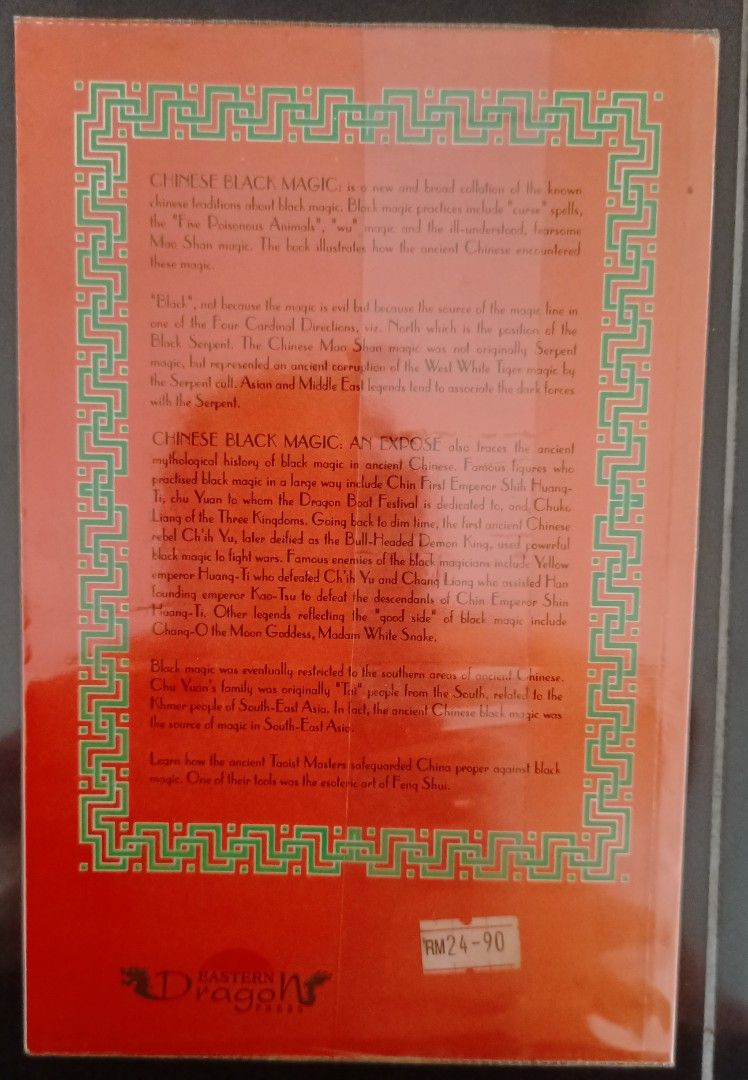 CHINESE BLACK MAGIC: is a new and broad collation of the known
chinese traditions about black magic. Black magic practices include "curse" spells,
the "Five Poisonous Animals", "wu" magic and the ill-understood, fearsome
Mao Shan magic. The book illustrates how the ancient Chinese encountered
these magic.
"Black", not because the magic is evil but because the source of the magic line in
one of the Four Cardinal Directions, viz. North which is the position of the
Black Serpent. The Chinese Mao Shan magic was not originally Serpent
magic, but represented an ancient corruption of the West White Tiger magic by
the Serpent cult. Asian and Middle East legends tend to associate the dark forces
with the Serpent.
CHINESE BLACK MAGIC: AN EXPOSE also traces the ancient
mythological history of black magic in ancient Chinese. Famous figures who
practised black magic in a large way include Chin First Emperor Shih Huang-
Ti, chu Yuan to whom the Dragon Boat Festival is dedicated to, and Chuko
Liang of the Three Kingdoms. Going back to dim time, the first ancient Chinese
rebel Ch'ih Yu, later deified as the Bull-Headed Demon King, used powerful
black magic to fight wars. Famous enemies of the black magicians include Yellow
emperor Huang-Ti who defeated Ch'ih Yu and Chang Liang who assisted Han
founding emperor Kao-Tsu to defeat the descendants of Chin Emperor Shin
Huang-Ti. Other legends reflecting the "good side" of black magic include
Chang-O the Moon Goddess, Madam White Snake.
Black magic was eventually restricted to the southern areas of ancient Chinese.
Chu Yuan's family was originally "Tai" people from the South, related to the
Khmer people of South-East Asia. In fact, the ancient Chinese black magic was
the source of magic in South-East Asia.
Learn how the ancient Taoist Masters safeguarded China proper against black
magic. One of their tools was the esoteric art of Feng Shui.
RM24-90
EASTERN
Dragon
PRESS